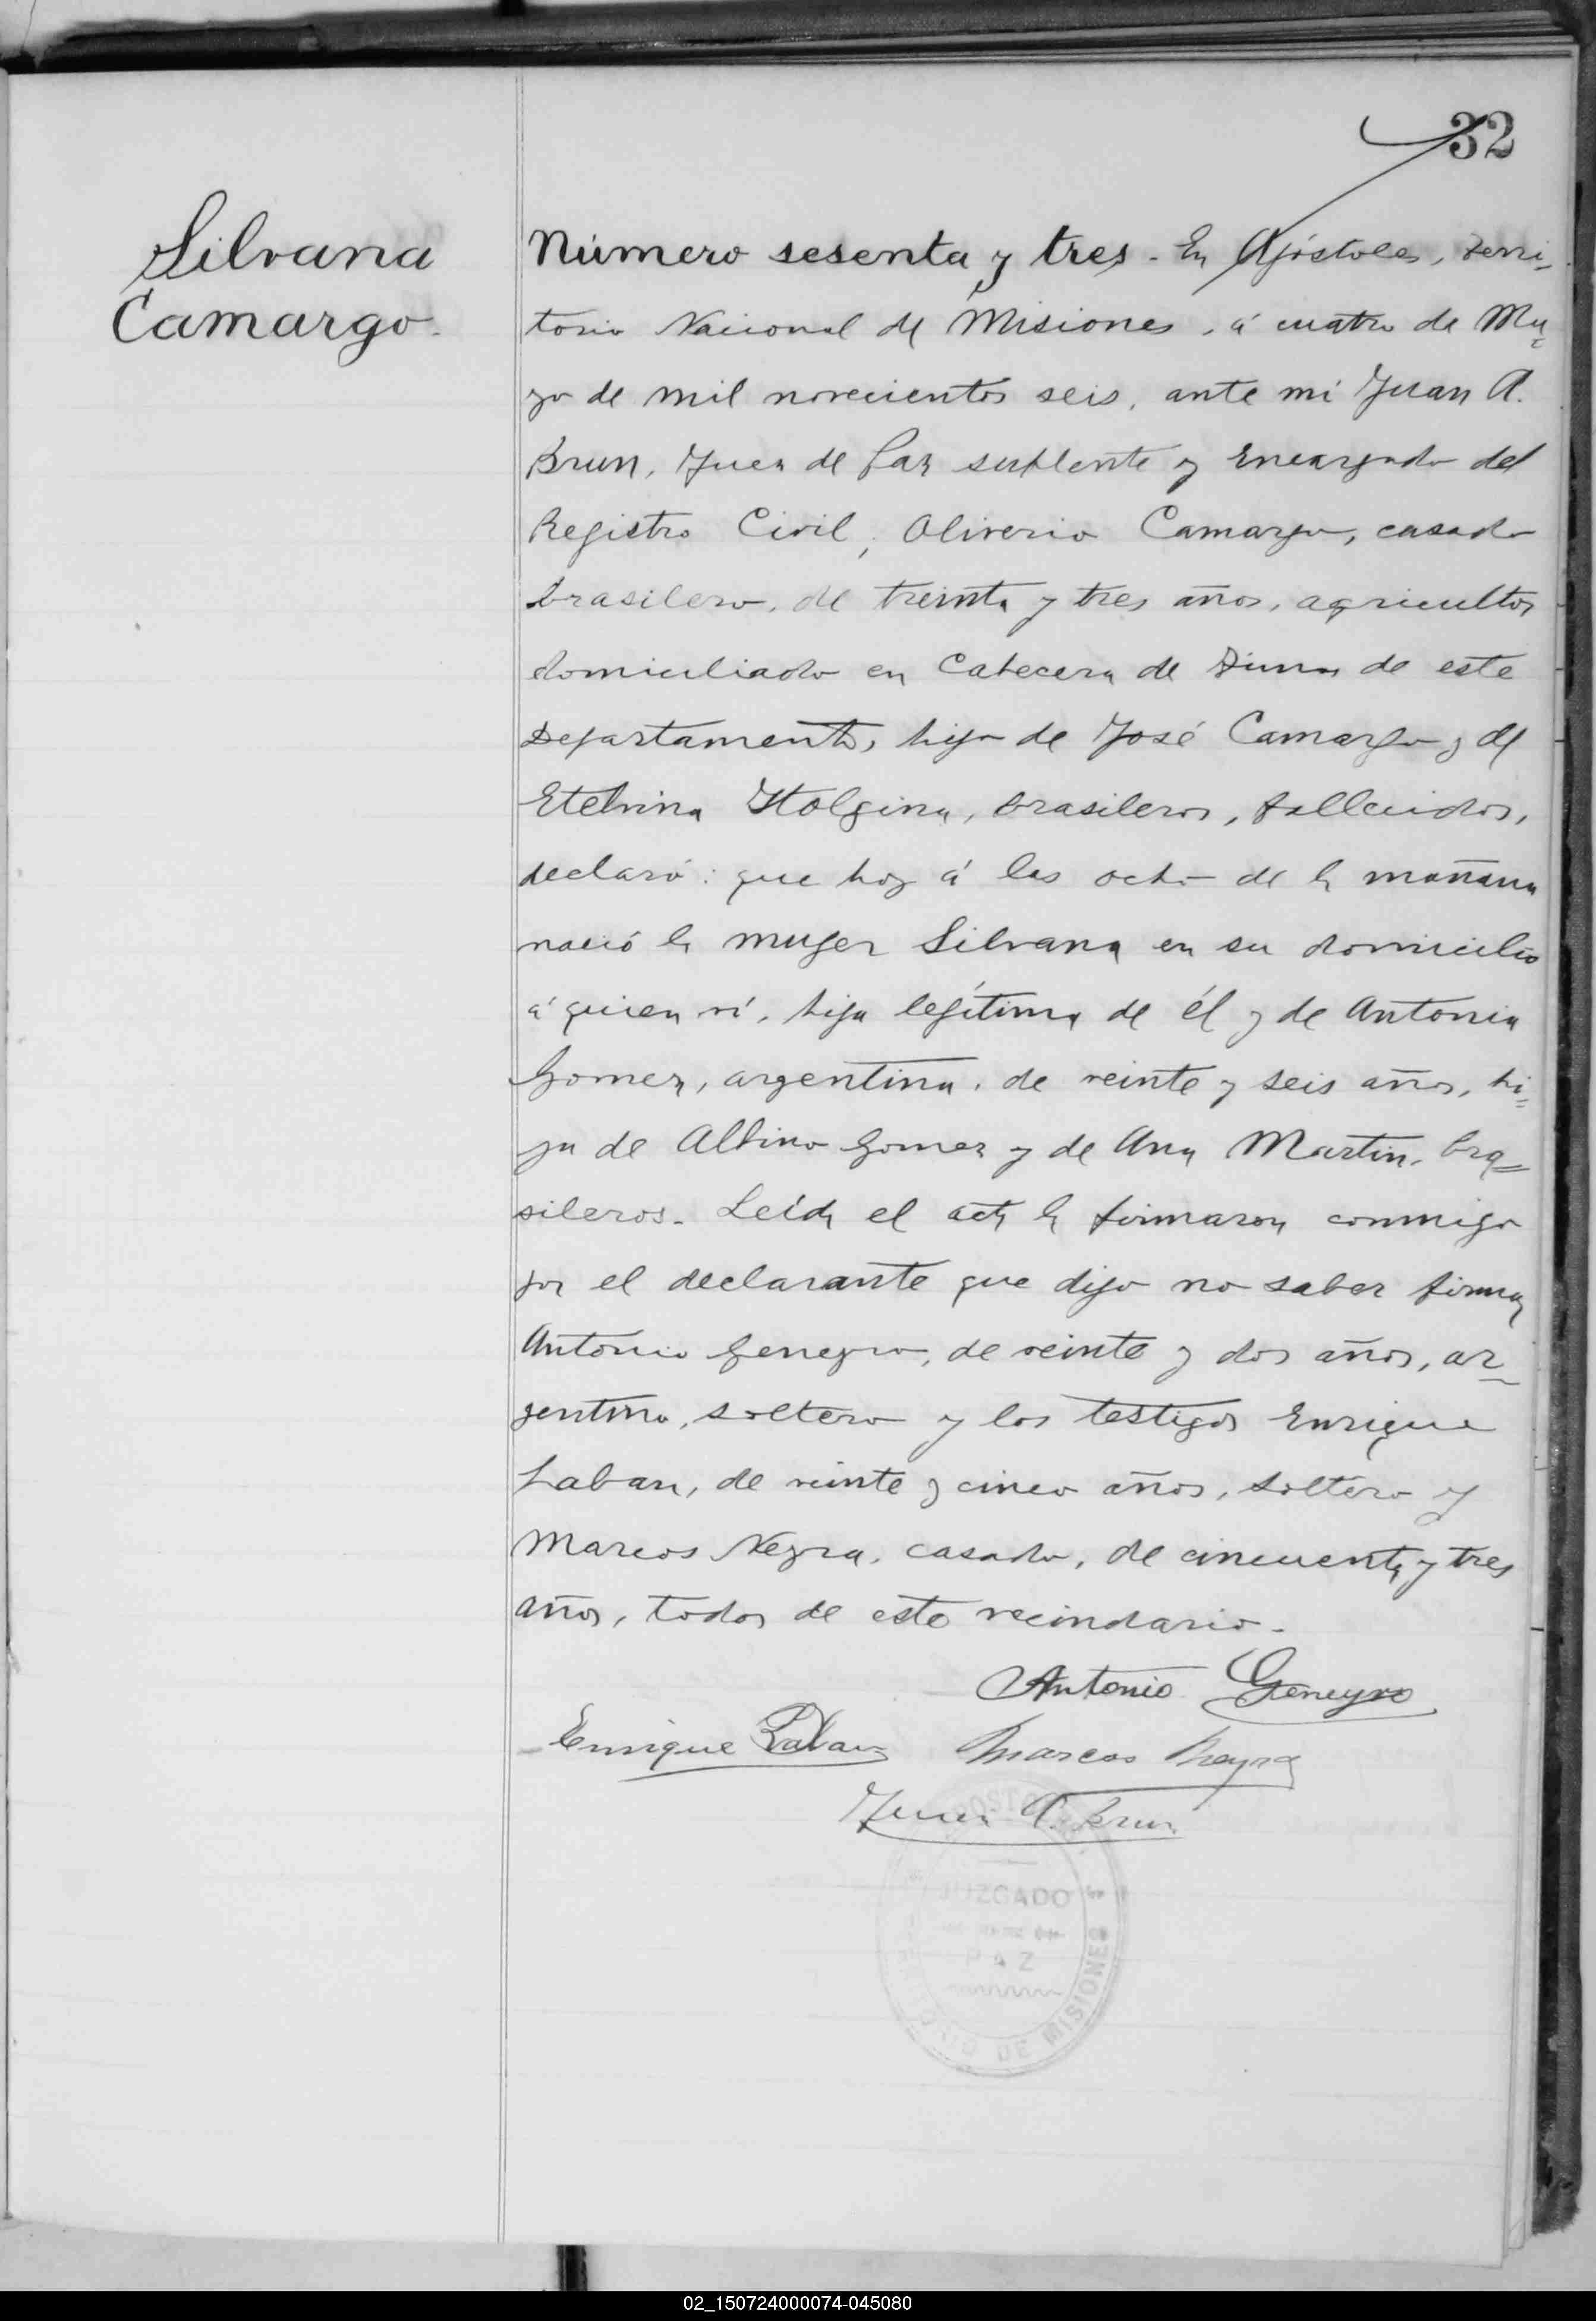 32
Silvana
Camargo.
Número sesenta y tres. En Apóstoles, terri-
torio Nacional de Misiones, á cuatro de Ma-
yo de mil novecientos seis, ante mi Juan A.
Brun, Juez de Paz suplente y Encargado del
Registro Civil, Oliverio Camargo, casado
brasilero, de treinta y tres años, agricultor
domiciliado en Cabecera de de este
Departamento, hijo de José Camargo y de
Etelvina Holgina, brasileros, fallecidos,
declaró: que hoy á las ocho de la mañana
nació la muger Silvana en su domicilio
á quien ví, hija legítima de él y de Antonia
Gomez, argentina, de veinte y seis años, hi-
ja de Albino Gomez y de Ana Martin, bra-
sileros. Leida el acta la firmaron conmigo
por el declarante que dijo no saber firmar
Antonio Geneyro, de veinte y dos años, ar-
gentino, soltero y los testigos Enrique
Laban, de veinte y cinco años, soltero y
Marcos Neyra, casado, de cincuenta y tres
años, todos de este vecindario.
Antonio Geneyro
Enrique Laban Marcos Neyra
Juan A. Brun
JUZGADO
PAZ
DE MISIONES
02_150724000074-045080